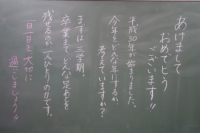 あけまして
おめでとう
ございます!!
平成30年が始まりました。
今年をどんな年にするか、
考えていますか?
まずは三学期。
卒業まで、どんな
残された一人ひとりの
一日一日を大切に
過ごしましょう。